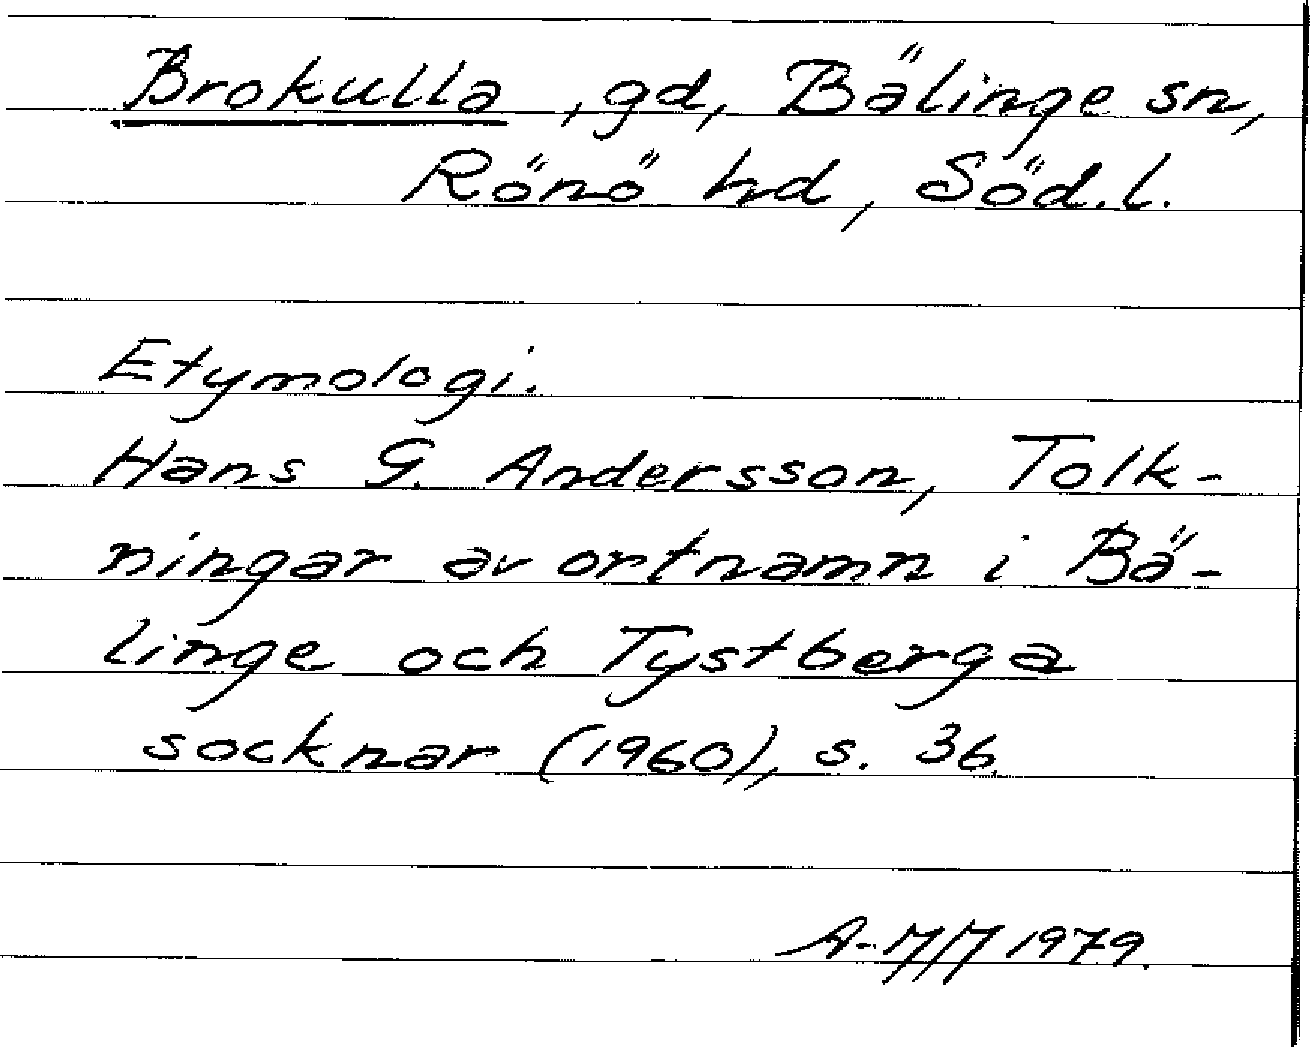 Brokulla, gd, Bälinge sn,
Rönö hd, Söd.l.
Etymologi.
Hans G. Andersson, Tolk-
ningar av ortnamn i Bä-
linge och Tystberga
socknar (1960), s. 36.
1979.